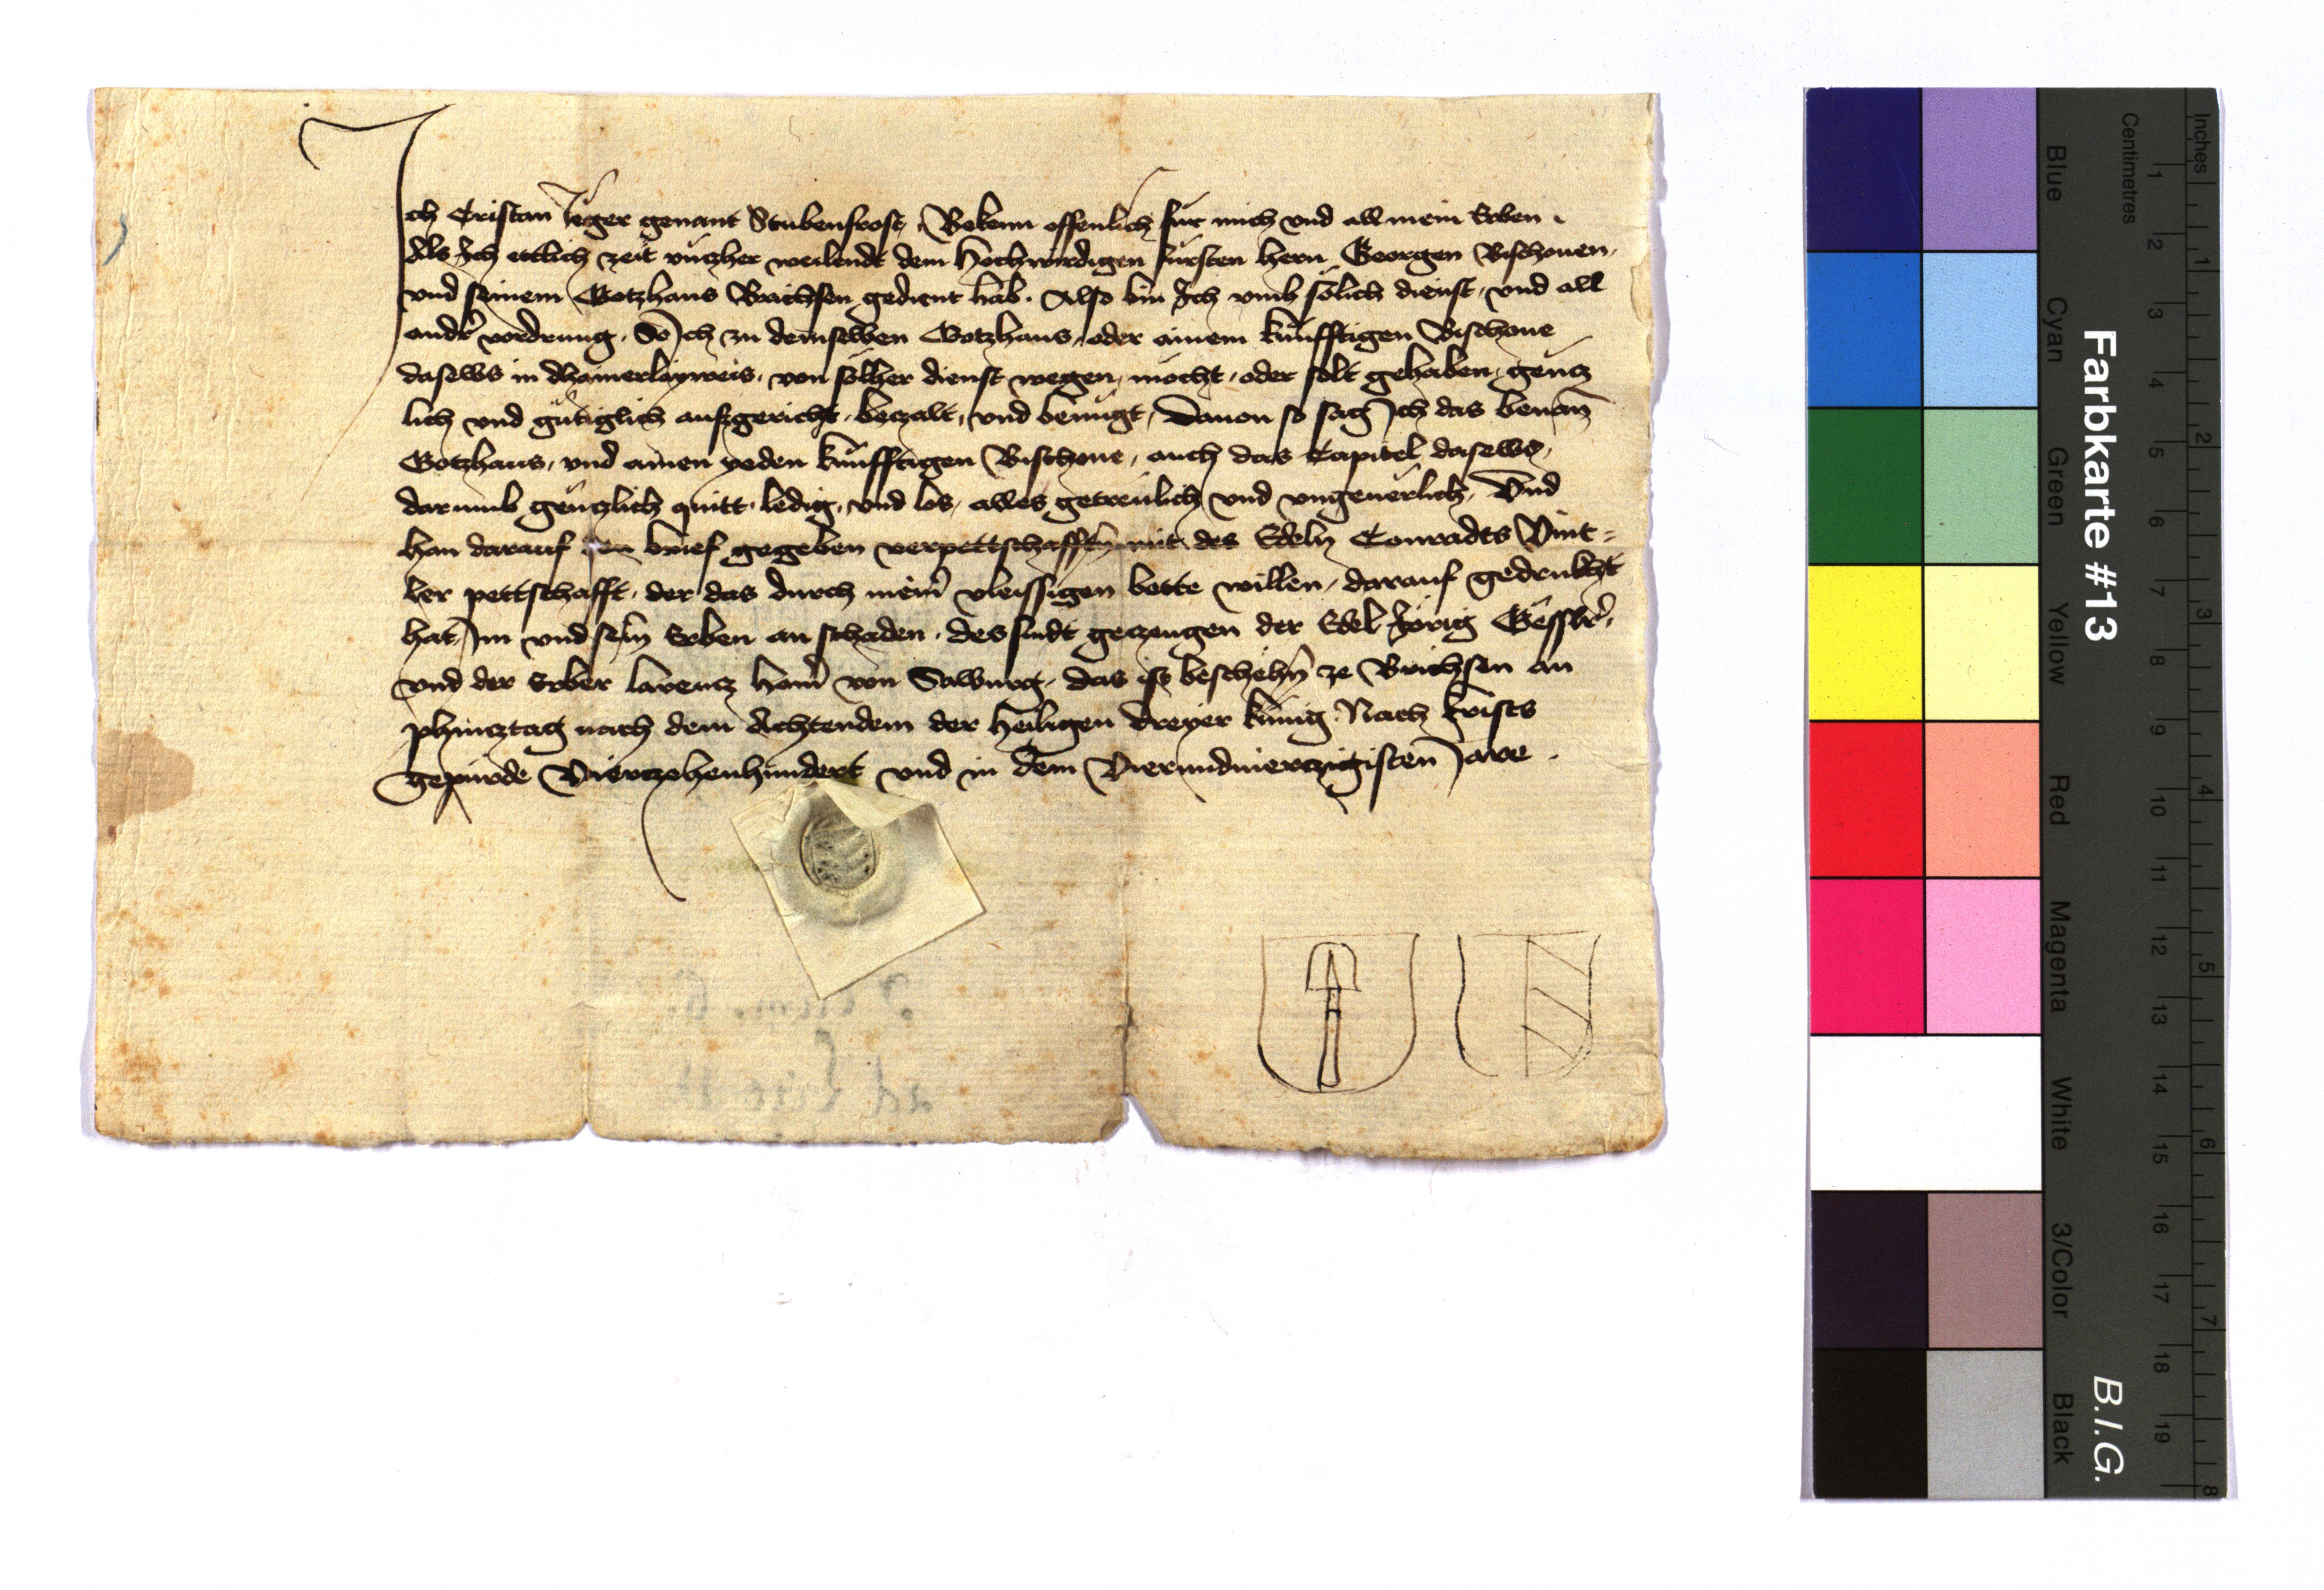 Ich Cristan Jeger genant Stubenfrost, Bekenn offenlich für mich vnd all mein Erben.
Als Ich ettlich zeit vnczher weilendt dem Hochwirdigen fürsten hern Georgen Bischouen,
vnd seinem Gotzhaus Brichsen gedient hab. Also bin Ich vmb sölich dienst, vnd all
andr vordrung. So Ich zu demselben Gotzhaus, oder ainem künfftigen Bischoue
daselbs in dhainerlayweis, von sölher dienst wegen, möcht, oder solt gehaben, gencz
lich vnd gütiglich aufzgericht, beczalt, vnd benügt, Dauon so sag Ich das benan
Gotzhaus, vnd ainen yeden künfftigen Bischoue, auch das Capitel daselbs,
darumb genczlich quitt, ledig, vnd los, alles getreülich vnd vngeuerlich, Vnd
han darauf den brief gegeben verpettschafften mit des Edeln Conradts Vint=
ler pettschafft, der das durch meinr vleissigen bette willen, darauf gedrukht
hat, Im vnd sein Erben an schaden. des sindt geczeugen der Edel Jörig Gesslr,
vnd der Erber larencz von das ist beschehn ze Brichsen an
phincztag nach dem Achtendem der heiligen dreyer künig. Nach Krists
gepurde Vierczehenhundert vnd in dem Vierundvierczigisten Jare.
Farbkarte #13
B.I.G.
Centimetres
Inches
Blue
Cyan
Green
Yellow
Red
Magenta
White
3/Color
Black
1 2 3 4 5 6 7 8 9 10 11 12 13 14 15 16 17 18 19
1 2 3 4 5 6 7 8